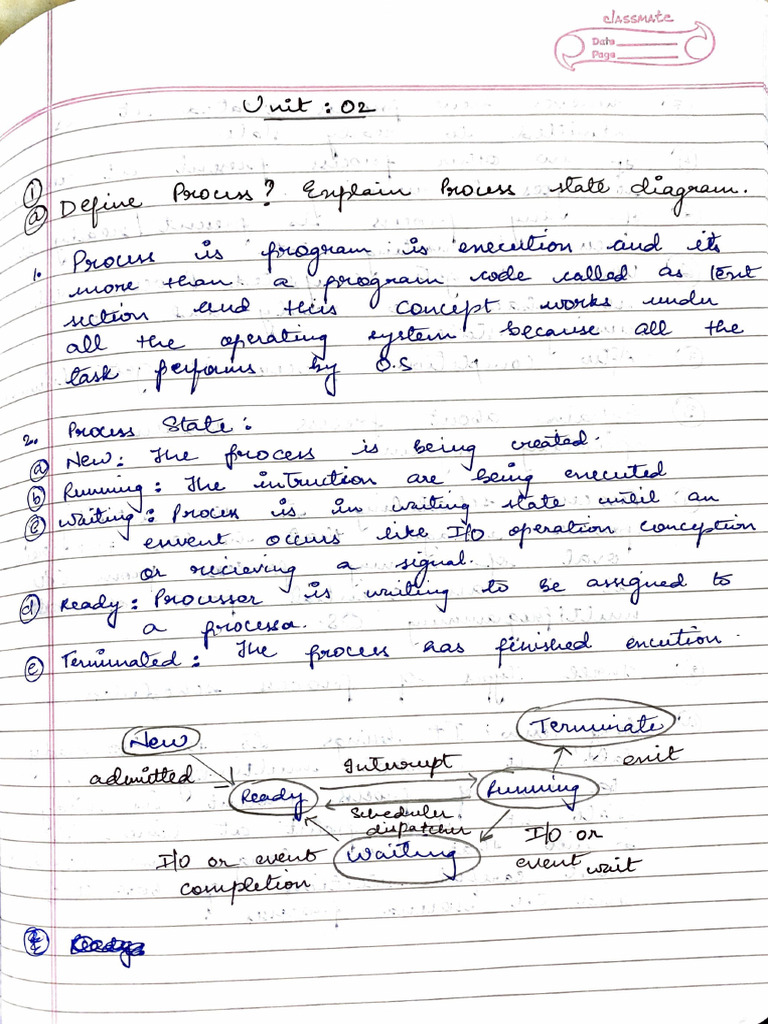 classmate
Date
Page
Unit : 02
①
ⓐ Define Process? Explain Process state diagram.
1. Process is program is execution and its
more than a program code called as text
section and this concept works under
all the operating system because all the
task performs by O.S
2. Process State:
ⓐ New: The process is being created.
ⓑ Running: The intruction are being executed
ⓒ Waiting: Proces is in waiting state until an
envent occurs like I/O operation conception
or recieving a signal.
ⓓ Ready: Processor is waiting to be assigned to
a processor.
ⓔ Terminated: The process has finished excution.
New
Terminate
admitted
Interrupt
exit
Ready
Running
Scheduler
dispatcher
I/O or event
completion
Waiting
I/O or
event wait